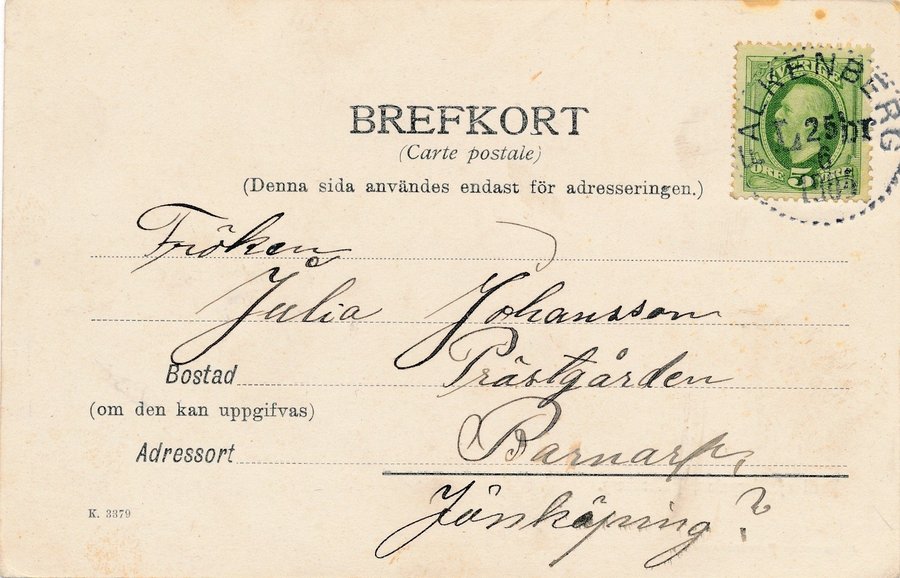 BREFKORT
(Carte postale)
(Denna sida användes endast för adresseringen.)
SVERIGE
FALKENBERG
25
6
ÖRE 5
Fröken
Julia Johansson
Bostad Prästgården
(om den kan uppgifvas)
Adressort Barnarp,
Jönköping ?
K. 3379